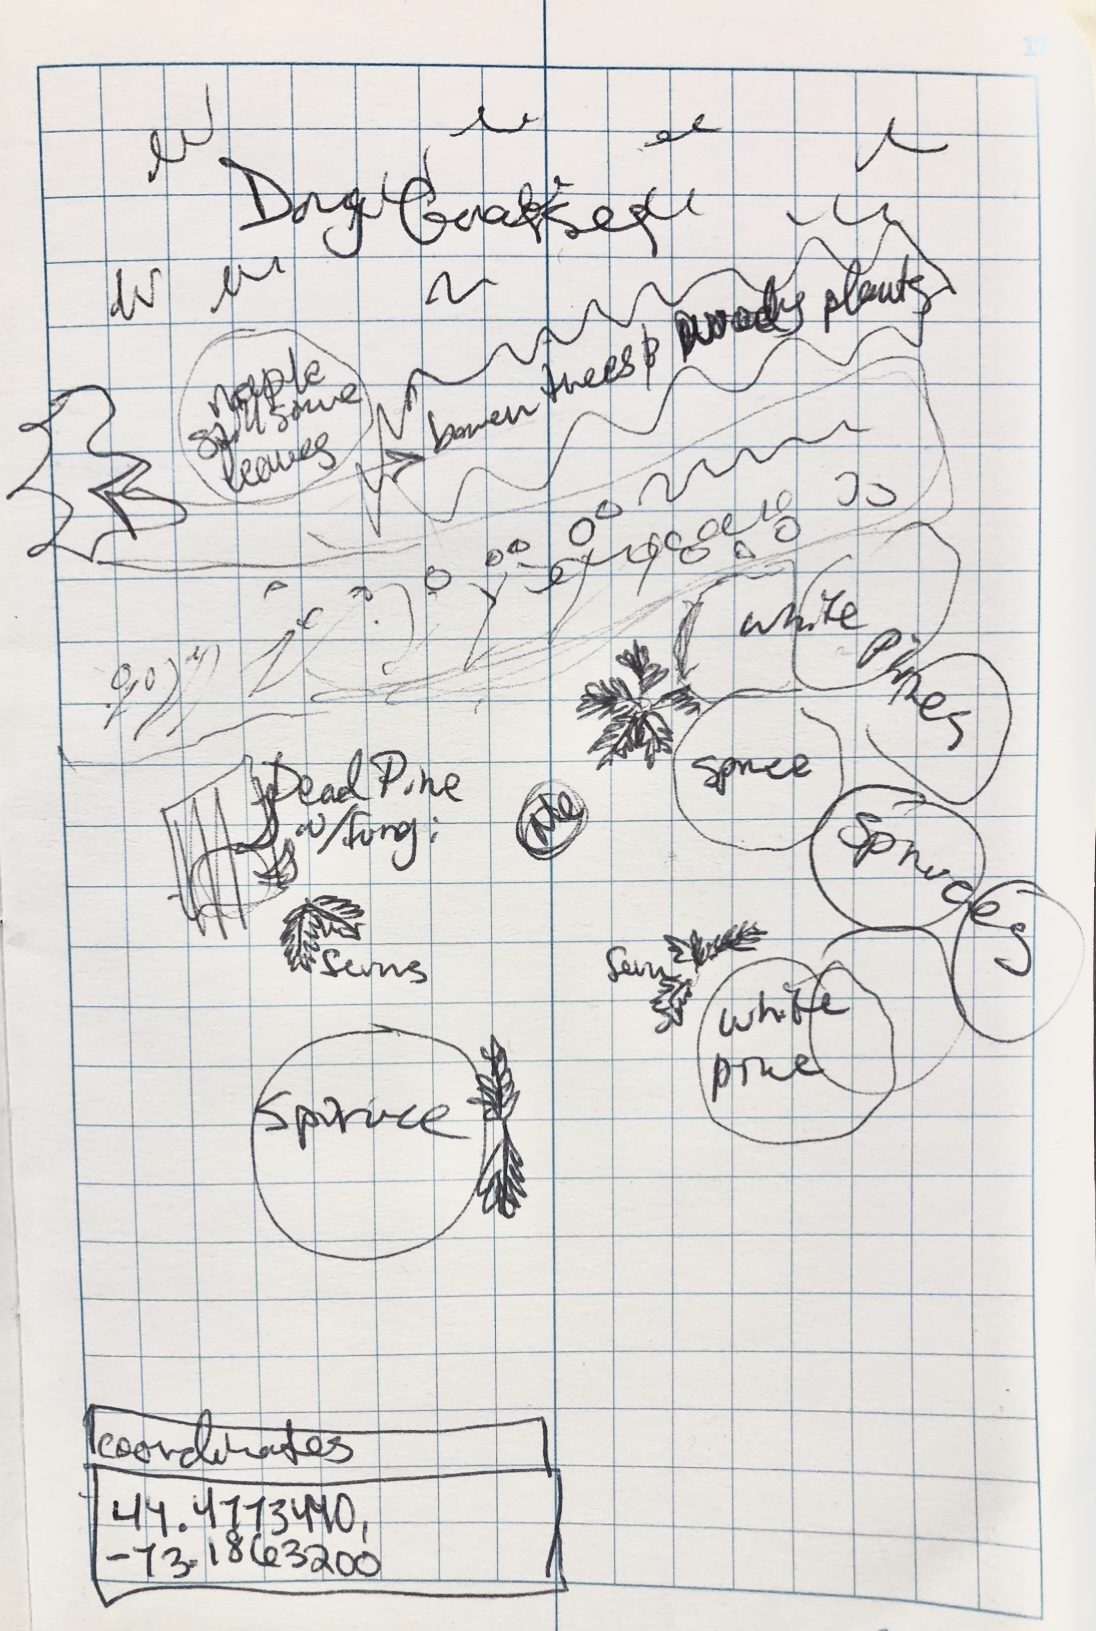 17
Dry Grasses
maple
still some
leaves
barren trees & woody plants
white
Pines
spruce
Dead Pine
w/fungi
Me
Spruces
ferns
fern
white
pine
Spruce
coordinates
44.4773440,
-73.1863200